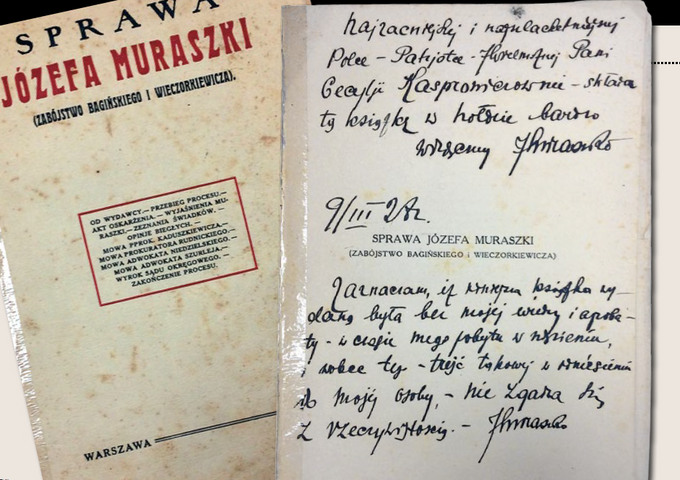 SPRAWA
JÓZEFA MURASZKI
(ZABÓJSTWO BAGIŃSKIEGO I WIECZORKIEWICZA).
OD WYDAWCY.— PRZEBIEG PROCESU.—
AKT OSKARŻENIA. — WYJAŚNIENIA MU-
RASZKI.— ZEZNANIA ŚWIADKÓW. —
OPINJE BIEGŁYCH. —
MOWA PPROK. KADUSZKIEWICZA.—
MOWA PROKURATORA RUDNICKIEGO.—
MOWA ADWOKATA NIEDZIELSKIEGO.—
MOWA ADWOKATA SZURLEJA.—
WYROK SĄDU OKRĘGOWEGO. —
ZAKOŃCZENIE PROCESU.
WARSZAWA
Najzacniejszej i najszlachetniejszej
Polce – Patrjotce – Pani
Cecylji Kasprowiczownie – składa
tę książkę w hołdzie bardzo
wdzięczny JMuraszko
9/III 28r.
SPRAWA JÓZEFA MURASZKI
(ZABÓJSTWO BAGIŃSKIEGO I WIECZORKIEWICZA)
Zaznaczam, iż książka wy-
daną była bez mojej wiedzy i aproba-
ty – w czasie mego pobytu w więzieniu,
i wobec tego – treść takowej w odniesieniu
do mojej osoby, – nie zgadza się
z rzeczywistością. – JMuraszko